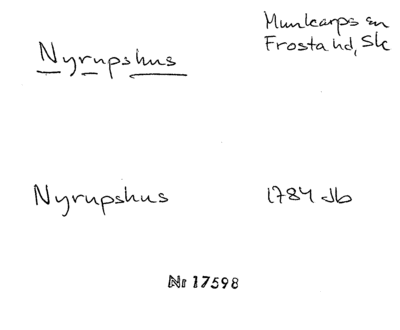 Nyrupshus
Munkarps sn
Frosta hd, Sk
Nyrupshus
1784 Jb
Nr 17598